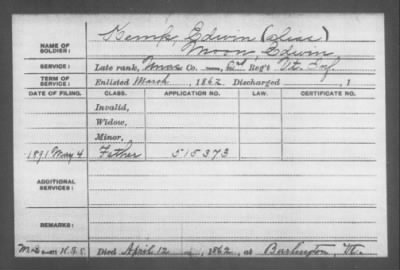 NAME OF SOLDIER: Kemp, Edwin (alias)
Moon, Edwin
SERVICE: Late rank, Unas Co. —, 2d Reg't Vt. Inf.
TERM OF SERVICE: Enlisted March, 1862 Discharged , 1
DATE OF FILING. CLASS. APPLICATION NO. LAW. CERTIFICATE NO.
Invalid,
Widow,
Minor,
1891 May 4 Father 515373
ADDITIONAL SERVICES:
REMARKS:
Died April 12, 1862, at Burlington, Vt.